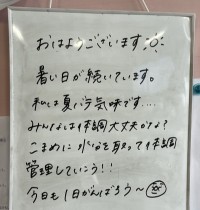 おはようございます
暑い日が続いています。
私は夏バテ気味です....
みんなは体調大丈夫かな?
こまめに水分を取って体調
管理していこう!!
今日も1日がんばろう〜